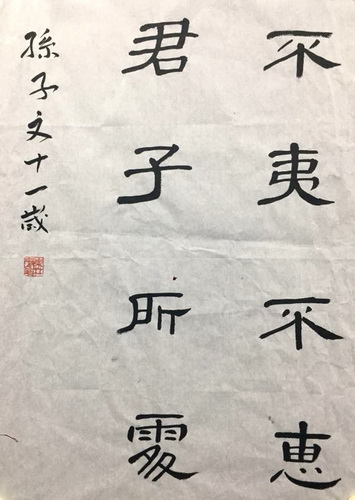 不夷不惠
君子所處
孫子文十一歲